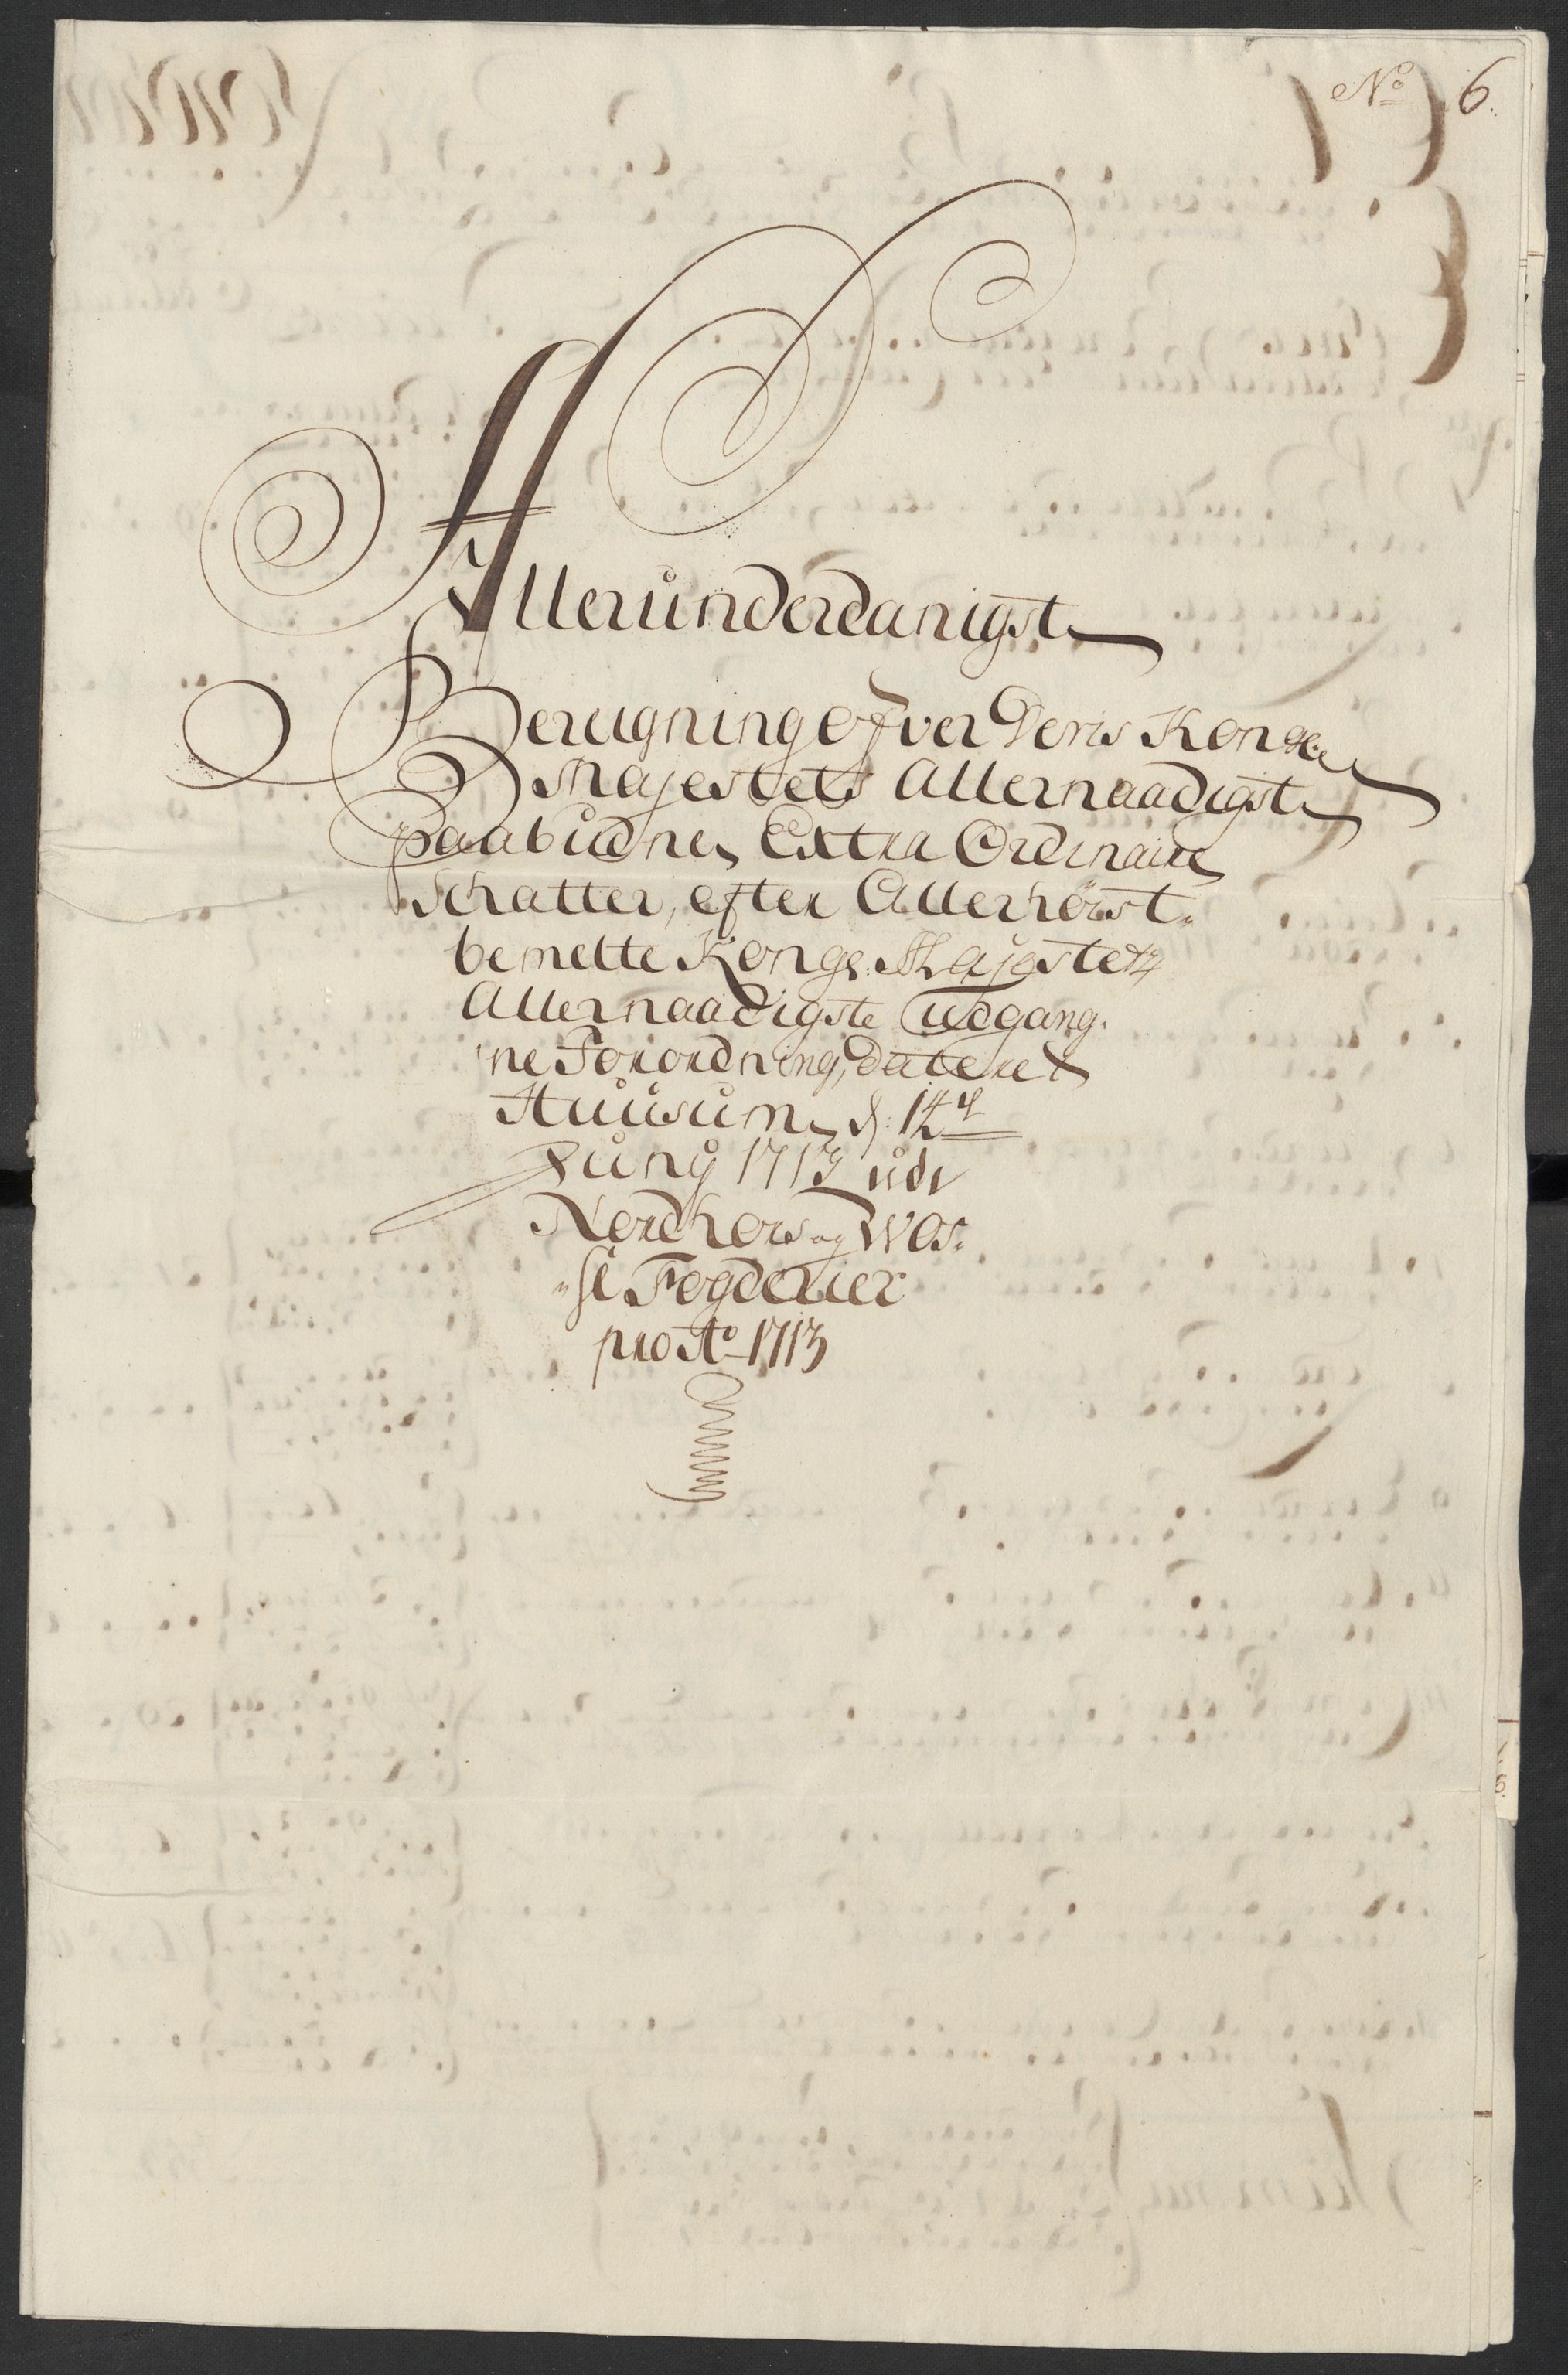 No 6.
Allerunderdanigst
Beregning ofver Deris Kongl:
Majestets Allernaadigst
paabudne Extra Ordinaire
Schatter, efter Allerhöist-
bemelte Kongl: Majestetz
Allernaadigste Udgang-
ne Forordning, dateret
Huusum d: 14
Juny 1713 udi
Nordhors og Wos-
se Fogderier
pro Ao 1713